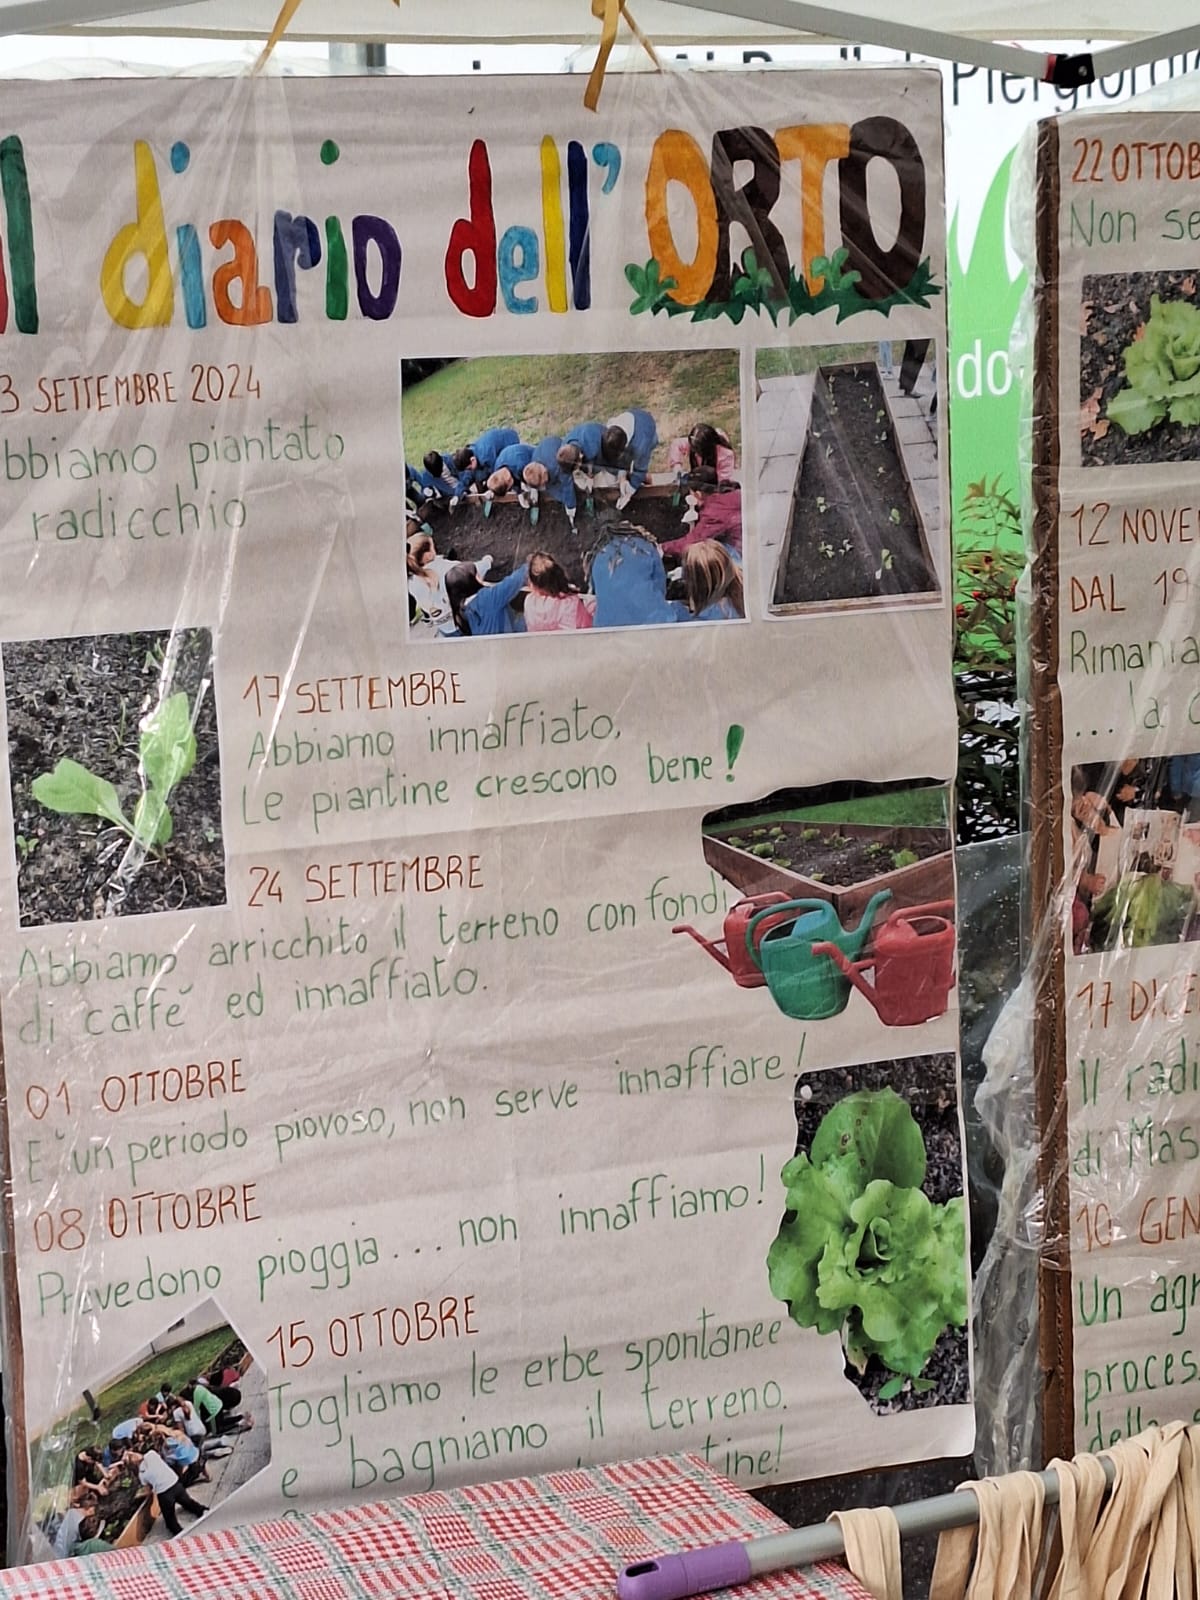 Il diario dell'ORTO
3 SETTEMBRE 2024
bbiamo piantato
radicchio
17 SETTEMBRE
Abbiamo innaffiato,
Le piantine crescono bene!
24 SETTEMBRE
Abbiamo arricchito il terreno con fondi
di caffè ed innaffiato.
01 OTTOBRE
E' un periodo piovoso, non serve innaffiare!
08 OTTOBRE
Prevedono pioggia... non innaffiamo!
15 OTTOBRE
Togliamo le erbe spontanee
e bagniamo il terreno.
tine!
Piergiorgi
do
22 OTTOB
Non se
12 NOVE
DAL 19
Rimania
... la
17 DICE
Il radi
di Mas
10 GEN
Un agr
proces
della